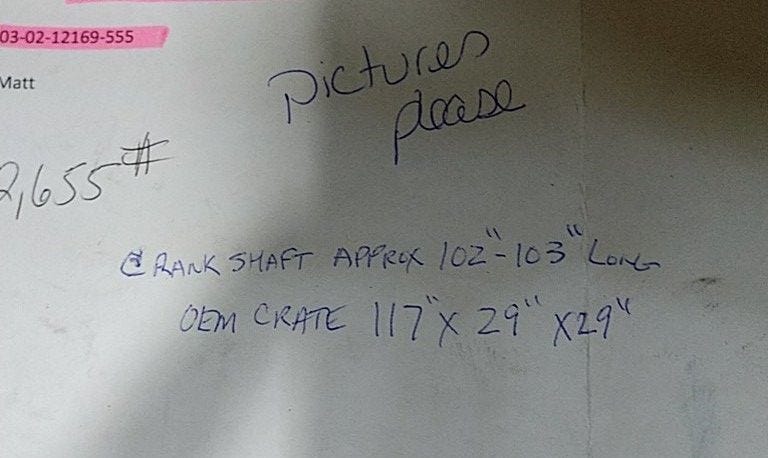 03-02-12169-555
Matt
pictures
please
2,655#
CRANKSHAFT APPROX 102"-103" LONG
OEM CRATE 117" X 29" X 29"